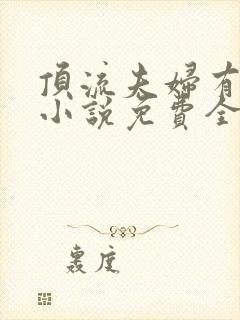 頂流夫婦有
小說免費全
裏度